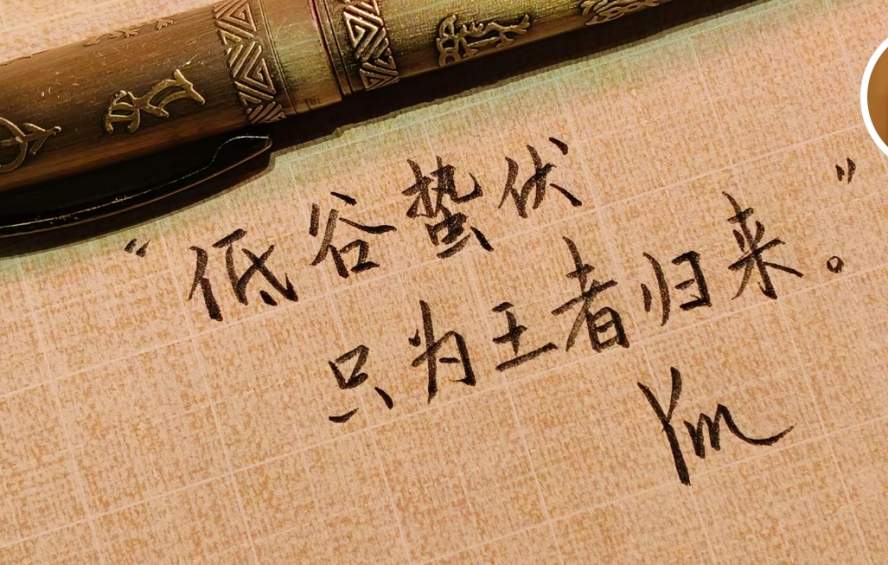 “低谷蛰伏
只为王者归来。”
Ym